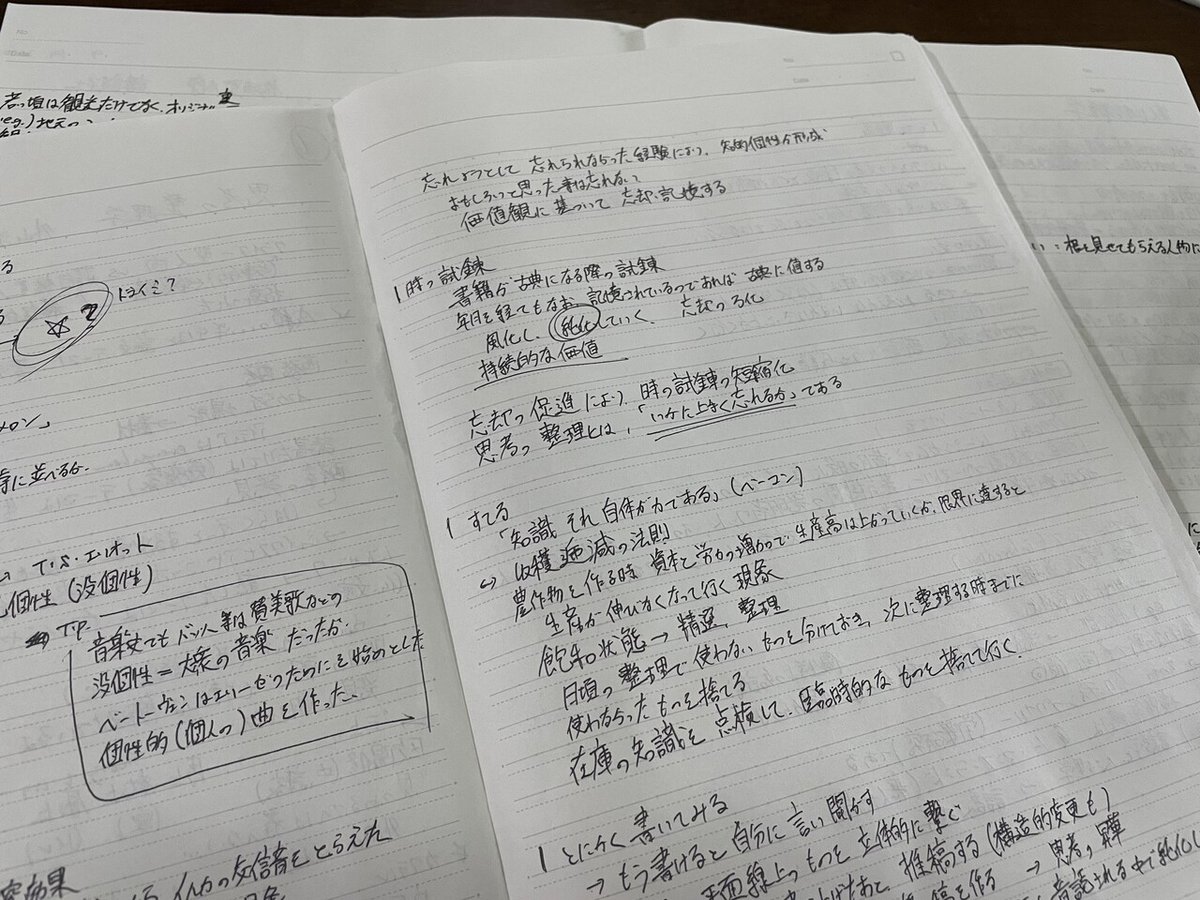 若い頃は観光だけでなく、オリジナル
e.g.) 地元の
る
トライミ?
☆?
メロン」
に並べるか.
T.S.エリオット
個性 (没個性)
T.P.
音楽史でも バッハ等は賛美歌などの
没個性=大衆の音楽 だったが
ベートーヴェンはエリーゼのためにを始めとした
個性的(個人の)曲を作った.
イルカの交信音をとらえた
効果
忘れようとして 忘れられなかった経験により、知的個性が形成
おもしろいと思った事は忘れない
価値観に基づいて 忘却・記憶する
時の試錬
書籍が古典になる際の試錬
年月を経てもなお、記憶されているのであれば 古典に値する
風化し、純化していく. 忘却のろ化
持続的な価値
忘却の促進により 時の試錬の短縮化
思考の整理とは、「いかに上手く忘れるか」である
すてる
「知識 それ自体が力である」(ベーコン)
↳ 収穫逓減の法則
農作物を作る時 資本と労力の増加で 生産高は上がっていくが、限界に達すると
生産が伸びなくなって行く現象
飽和状態→精選、整理
日頃の整理で使わないものを分けておき、次に整理する時までに
使わなかったものを捨てる
在庫の知識を点検して、臨時的なものを捨てて行く.
とにかく書いてみる
→ もう書けると自分に言い聞かす
平面線上のものを立体的に繋ぐ
上げたあと、推稿する(構造的変更も)
稿を作る → 思考の
音読される中で純化し
い:根を見せてもらえる人物に
に